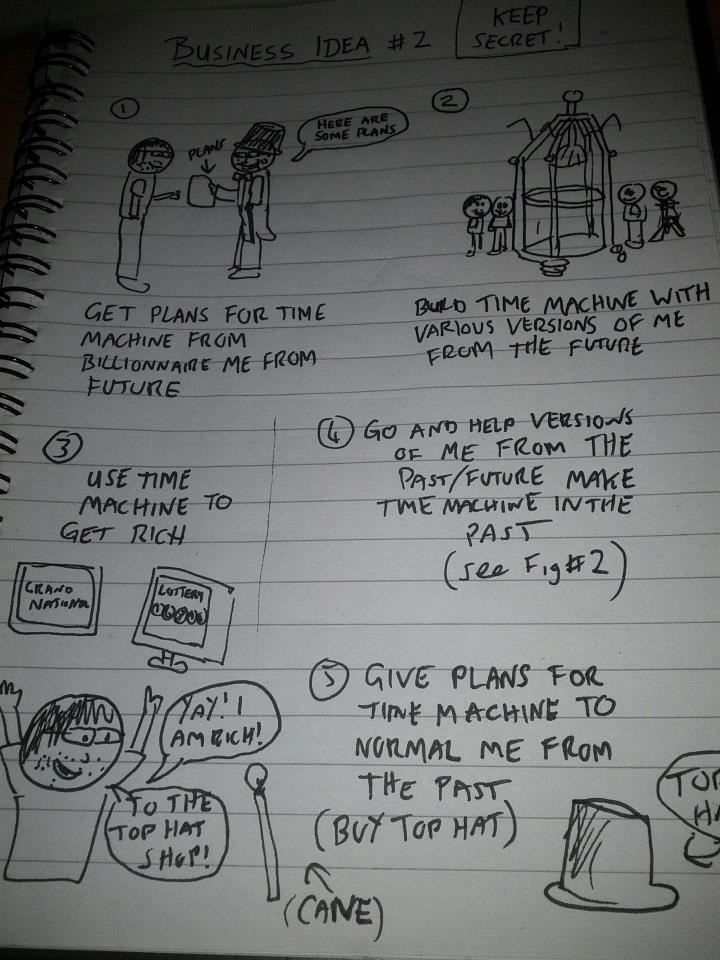 BUSINESS IDEA #2
KEEP
SECRET!
①
PLANS
HERE ARE
SOME PLANS
GET PLANS FOR TIME
MACHINE FROM
BILLIONNAIRE ME FROM
FUTURE
②
BUILD TIME MACHINE WITH
VARIOUS VERSIONS OF ME
FROM THE FUTURE
③
USE TIME
MACHINE TO
GET RICH
GRAND
NATIONAL
LOTTERY
YAY! I
AM RICH!
TO THE
TOP HAT
SHOP!
④ GO AND HELP VERSIONS
OF ME FROM THE
PAST/FUTURE MAKE
TIME MACHINE IN THE
PAST
(see Fig #2)
⑤ GIVE PLANS FOR
TIME MACHINE TO
NORMAL ME FROM
THE PAST
(BUY TOP HAT)
(CANE)
TOP